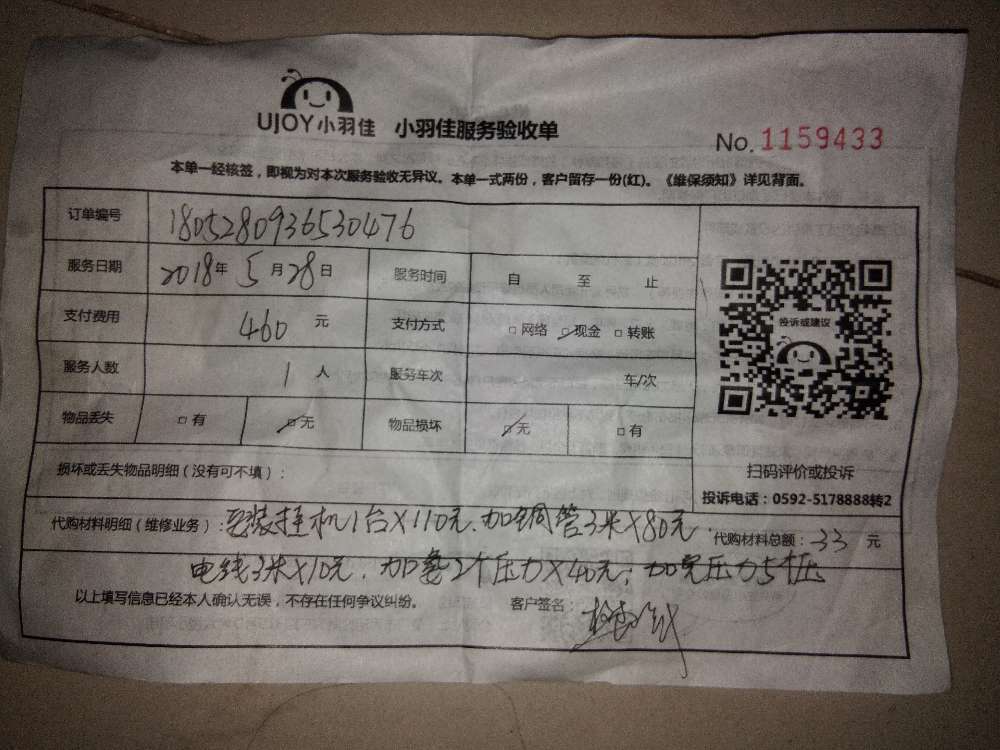 UJOY小羽佳 小羽佳服务验收单
No. 1159433
本单一经核签，即视为对本次服务验收无异议。本单一式两份，客户留存一份(红)。《维保须知》详见背面。
订单编号 180528093653047​6
服务日期 2018年 5月28日 服务时间 自 至 止
支付费用 460 元 支付方式 □网络 ☑现金 □转账
投诉或建议
服务人数 1 人 服务车次 车/次
物品丢失 □有 ☑无 物品损坏 ☑无 □有
损坏或丢失物品明细（没有可不填）：
扫码评价或投诉
投诉电话：0592-5178888转2
代购材料明细（维修业务）：装挂机1台X110元.加铜管3米X80元.
代购材料总额：33 元
电线3米X10元.加 2个压力X40元；加 压力5
以上填写信息已经本人确认无误，不存在任何争议纠纷。 客户签名：